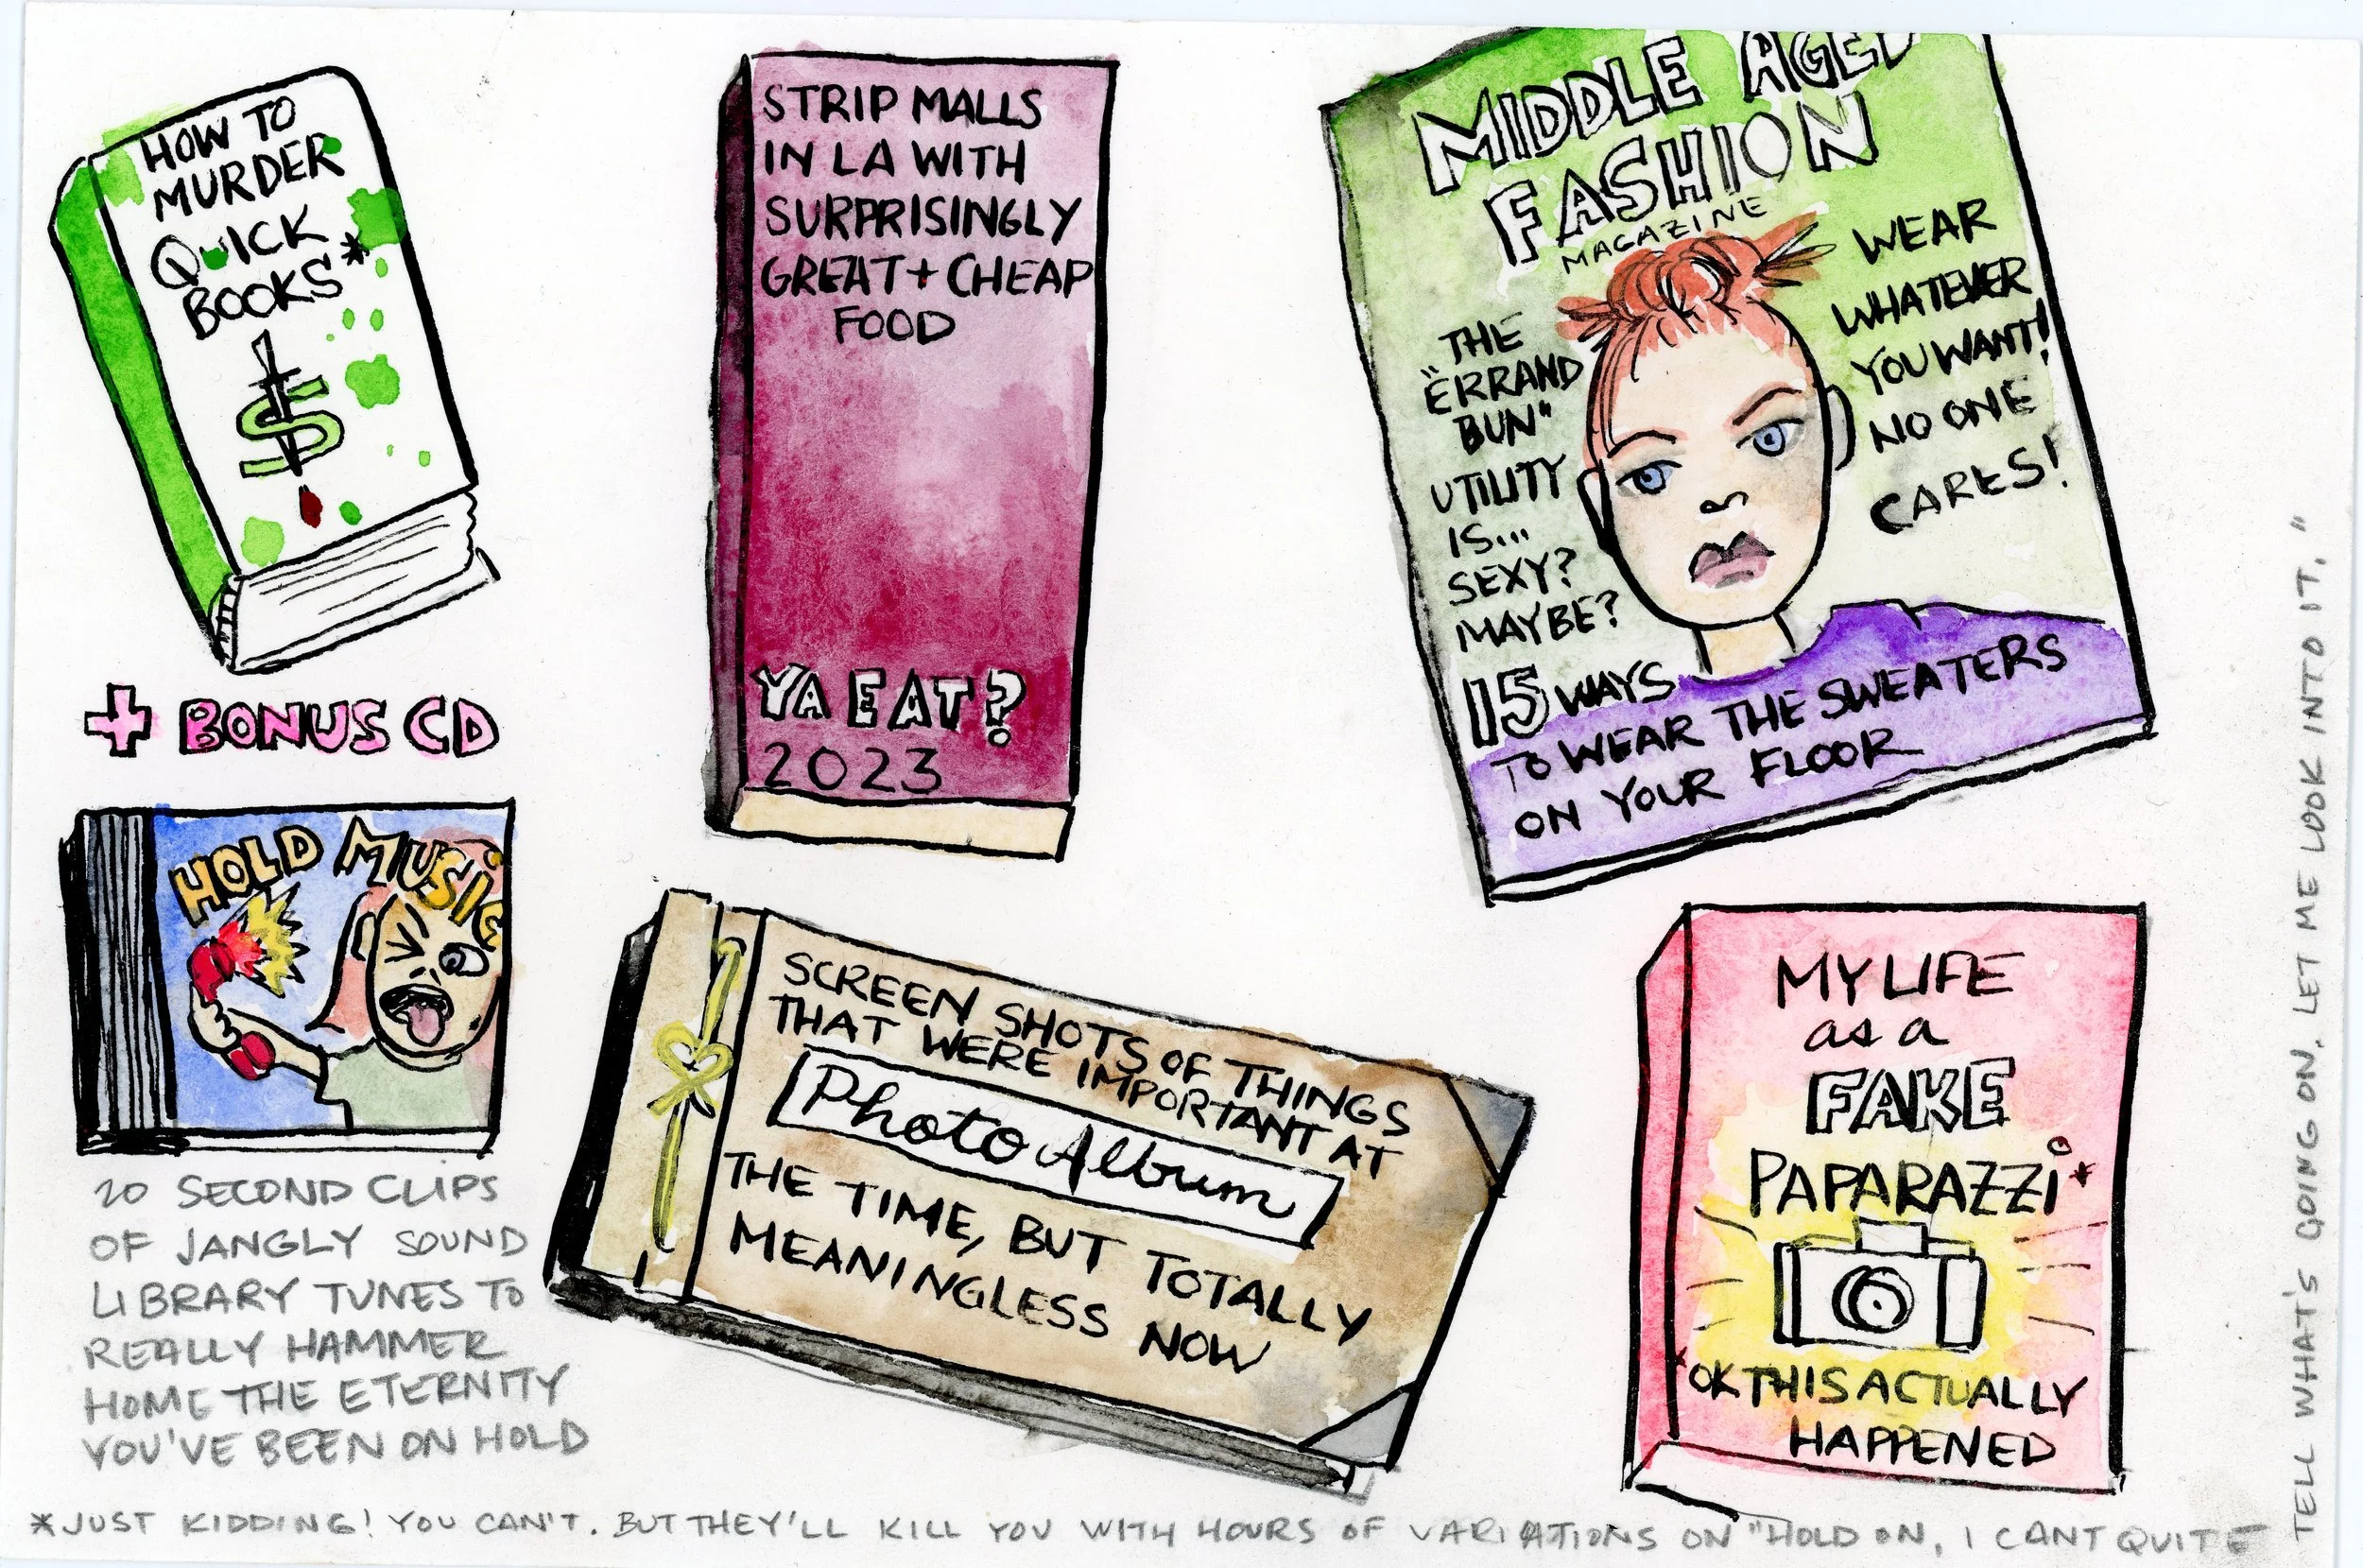 HOW TO
MURDER
QUICK
BOOKS*
$
+ BONUS CD
HOLD MUSIC
20 SECOND CLIPS
OF JANGLY SOUND
LIBRARY TUNES TO
REALLY HAMMER
HOME THE ETERNITY
YOU'VE BEEN ON HOLD
STRIP MALLS
IN LA WITH
SURPRISINGLY
GREAT + CHEAP
FOOD
YA EAT?
2023
MIDDLE AGED
FASHION
MAGAZINE
THE
"ERRAND
BUN"
UTILITY
IS...
SEXY?
MAYBE?
WEAR
WHATEVER
YOU WANT!
NO ONE
CARES!
15 WAYS
TO WEAR THE SWEATERS
ON YOUR FLOOR
SCREEN SHOTS OF THINGS
THAT WERE IMPORTANT AT
Photo Album
THE TIME, BUT TOTALLY
MEANINGLESS NOW
MY LIFE
as a
FAKE
PAPARAZZI*
*OK THIS ACTUALLY
HAPPENED
*JUST KIDDING! YOU CAN'T. BUT THEY'LL KILL YOU WITH HOURS OF VARIATIONS ON "HOLD ON, I CANT QUITE
TELL WHAT'S GOING ON. LET ME LOOK INTO IT."